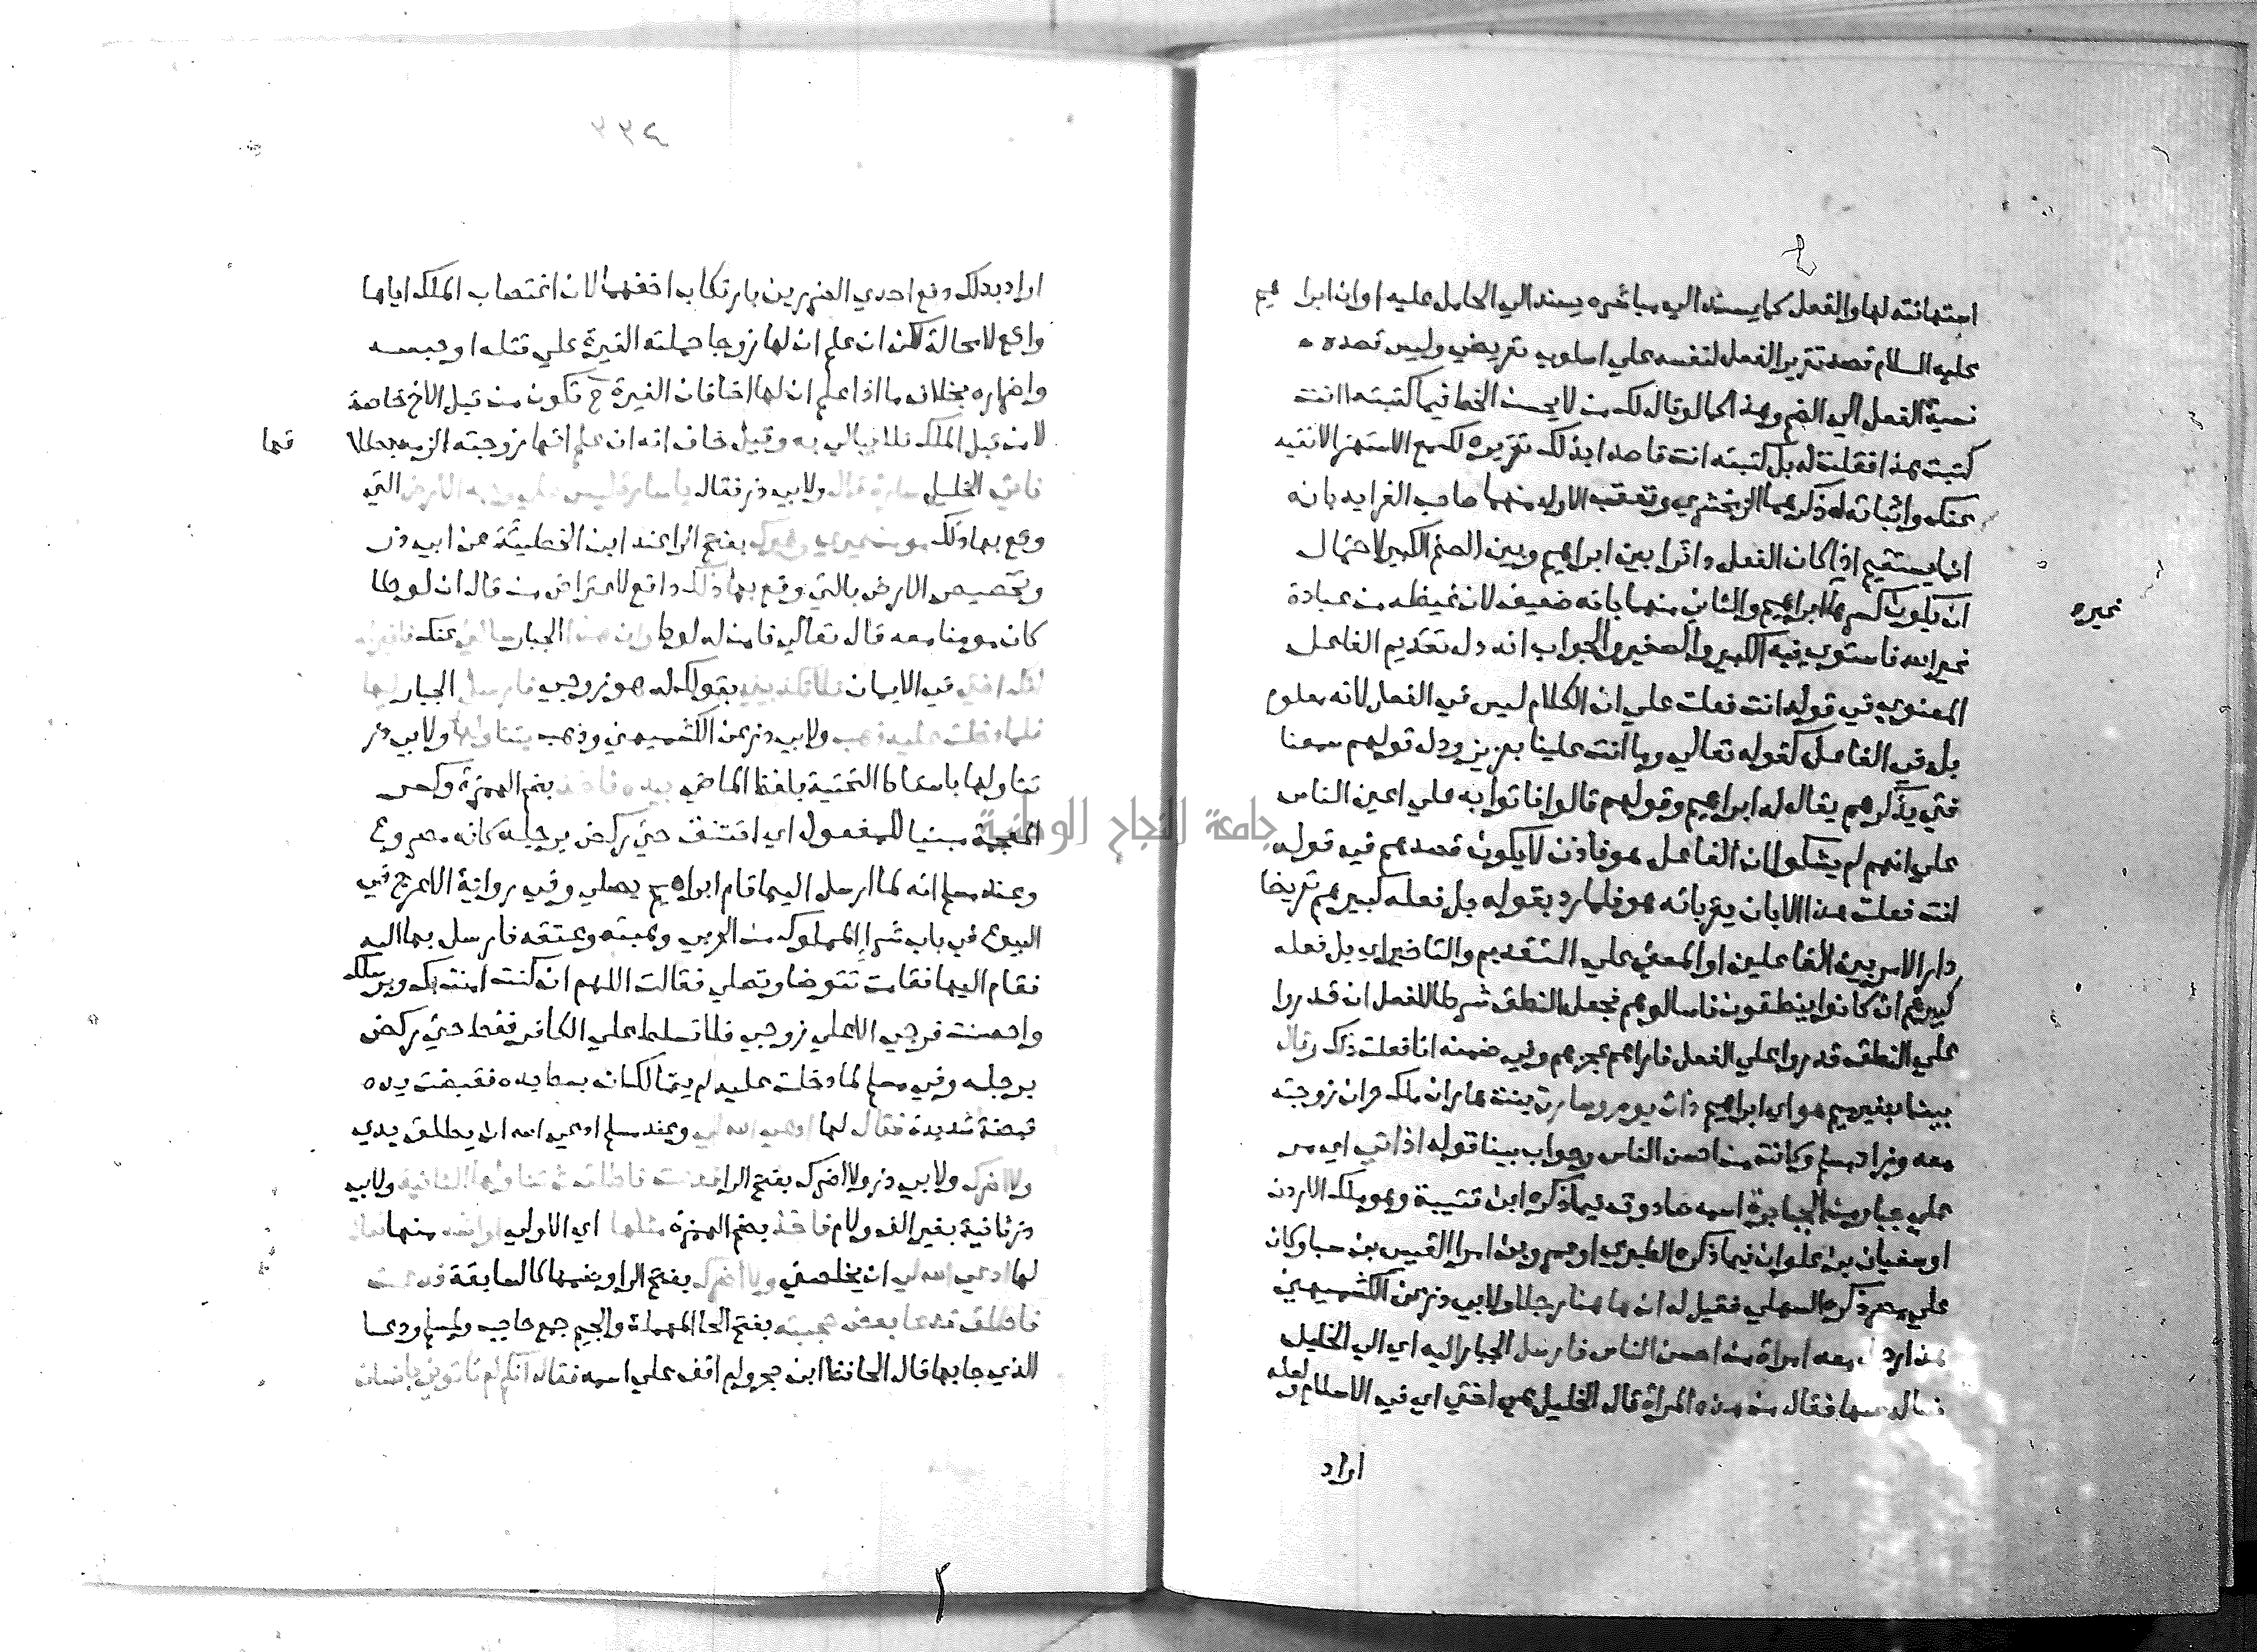 استهانته لها والفعل كما يسند الي مباشره يسند الي الحامل عليه او ان ابراهيم
عليه السلام قصد تقرير الفعل لنفسه علي اسلوب تعريضي وليس قصده
نسبة الفعل الي الصنم وهذا كما لو قال لك من لا يحسن الخط فيما كتبته اانت
كتبت هذا فقلت له بل كتبته انت قاصدا بذلك تقريره لك مع الاستهزا لا نفيه
عنك واثباته له ذكرهما الزمخشري وتعقب الاول منهما صاحب الفرايد بانه
انما يستقيم اذا كان الفعل دائرا بين ابراهيم وبين الصنم الكبير لاحتمال
ان يكون كسرها غير ابراهيم والثاني منهما بانه ضعيف لان غيظه من عبادة
غير الله فاستوي فيه الكبير والصغير والجواب انه دل تقديم الفاعل
المعنوي في قوله اانت فعلت علي ان الكلام ليس في الفعل لانه معلوم
بل في الفاعل كقوله تعالي وما انت علينا بعزيز ودل قولهم سمعنا
فتي يذكرهم يقال له ابراهيم وقولهم قالوا فاتوا به علي اعين الناس
علي انهم لم يشكوا ان الفاعل هو فاذن لا يكون قصدهم في قوله
اانت فعلت هذا الا بان يقر بانه هو فلما رد بقوله بل فعله كبيرهم تعريضا
دار الامر بين الفاعلين او المعني علي التقديم والتاخير اي بل فعله
كبيرهم ان كانوا ينطقون فاسالوهم فجعل النطق شرطا للفعل ان قدروا
علي النطق قدروا علي الفعل فاراهم عجزهم وفي ضمنه انا فعلت ذلك وقال
بينما بغير ميم هو اي ابراهيم ذات يوم وسارة بنت هاران ملك حران زوجته
معه وزاد مسلم وكانت من احسن الناس وجواب بينا قوله اذ اتي اي مر
علي جبار من الجبابرة اسمه صادوق فيما ذكره ابن قتيبة وهو ملك الاردن
او سفيان بن علوان فيما ذكره الطبري او عمرو بن امرا القيس بن سبا وكان
علي مصر ذكره السهيلي فقيل له ان هاهنا رجلا ولابي ذر عن الكشميهني
هذا رجل معه امراة من احسن الناس فارسل الجبار اليه اي الي الخليل
فساله عنها فقال من هذه المراة قال الخليل هي اختي اي في الاسلام ولعله
اراد
اراد بذلك دفع احدي الضررين بارتكاب اخفهما لان اغتصاب الملك اياها
واقع لا محالة لكن ان علم ان لها زوجا حملته الغيرة علي قتله او حبسه
واضراره بخلاف ما اذا علم ان لها اخا فان الغيرة ح تكون من قبل الاخ خاصة
لا من قبل الملك فلا يبالي به وقيل خاف انه ان علم انها زوجته الزمه بطلاقها
فاتي الخليل سارة فقال ولابي ذر فقال يا سارة ليس علي وجه الارض التي
وقع بها ذلك مومن غيري وغيرك بفتح الرا عند ابن الحطيئة عن ابي ذر
وتخصيص الارض بالتي وقع بها ذلك دافع لاعتراض من قال ان لوطا
كان مومنا معه قال تعالي فامن له لوط وان هذا الجبار سالني عنك فاخبرته
انك اختي في الايمان فلا تكذبيني بقولك له هو زوجي فارسل الجبار اليها
فلما دخلت عليه ذهب ولابي ذر عن الكشميهني وذهب يتناولها ولابي ذر
تناولها باسقاط التحتية بلفظ الماضي بيده فاخذ بضم الهمزة وكسر
المعجمة مبنيا للمفعول اي اختنق حتي ركض برجله كانه مصروع
وعند مسلم انه لما ارسل اليها قام ابراهيم يصلي وفي رواية الاعرج في
البيوع في باب شرا المملوك من الحربي وهبته وعتقه فارسل بها اليه
فقام اليها فقامت تتوضا وتصلي فقالت اللهم ان كنت امنت بك وبرسولك
واحصنت فرجي الا علي زوجي فلا تسلط علي الكافر فغط حتي ركض
برجله وفي مسلم لما دخلت عليه لم يتمالك ان بسط يده فقبضت يده
قبضة شديدة فقال لها ادعي الله لي وعند مسلم ادعي الله ان يطلق يدي
ولا اضرك ولابي ذر ولا اضرك بفتح الرا فدعت فاطلق ثم تناولها الثانية ولابي
ذر ثانية بغير الف ولام فاخذ بضم الهمزة مثلها اي الاولي او اشد منها فقال
لها ادعي الله لي ان يخلصني ولا اضرك بفتح الرا وضمها كالسابقة فدعت
فاطلق فدعا بعض حجبته بفتح الحا المهملة والجيم جمع حاجب ولمسلم ودعا
الذي جا بها قال الحافظ ابن حجر ولم اقف علي اسمه فقال انكم لم تاتوني بانسان
غيره
جامعة النجاح الوطنية